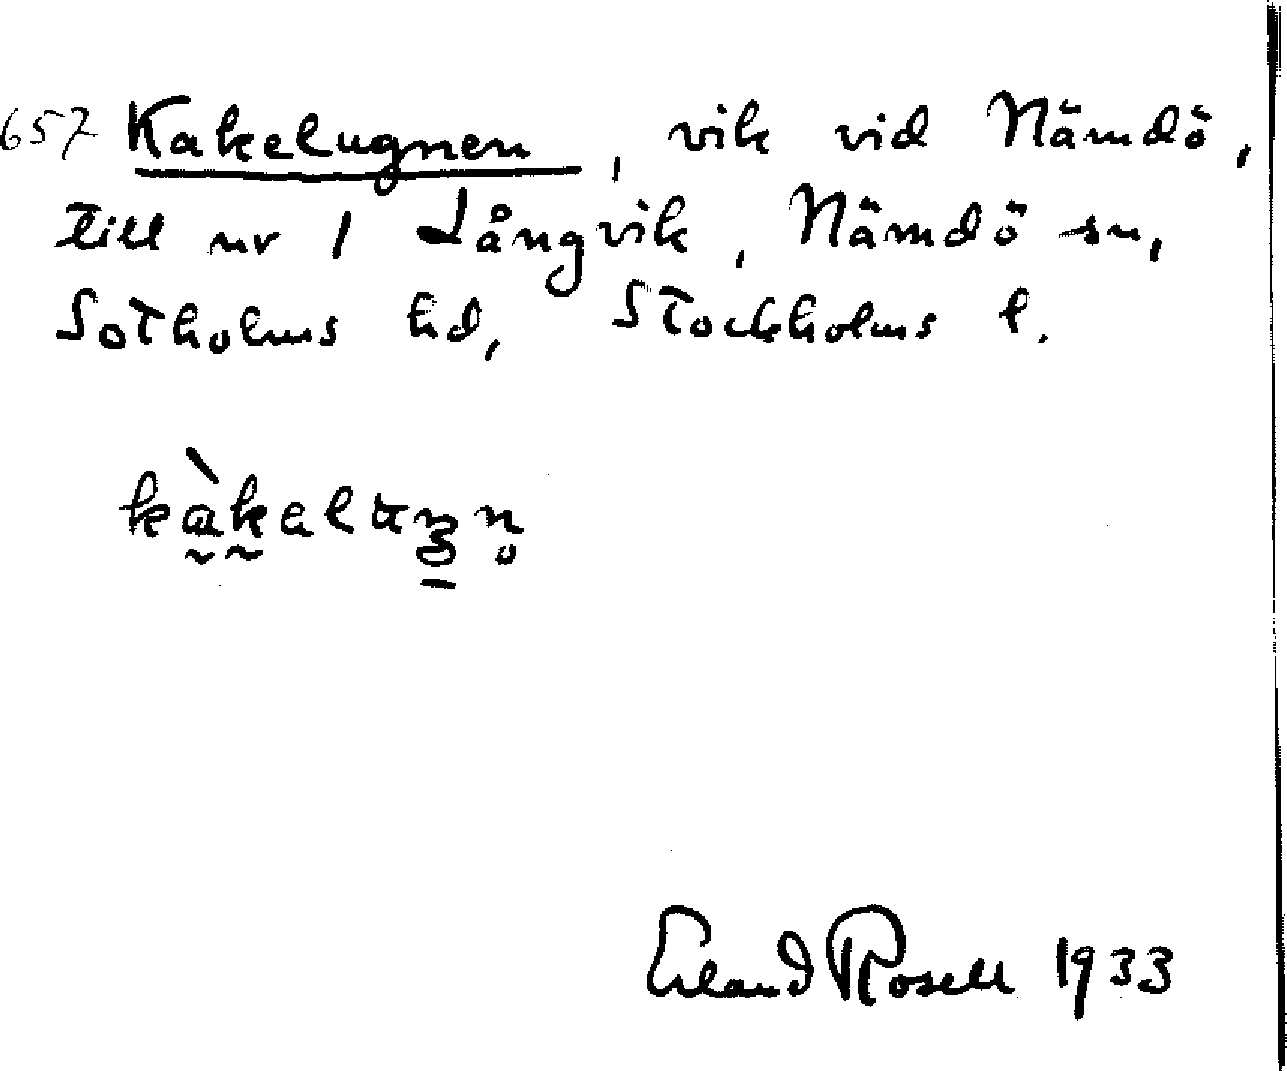 657 Kakelugnen, vik vid Nämdö,
till nr 1 Långvik, Nämdö sn,
Sotholms hd, Stockholms l.
Erland Rosell 1933